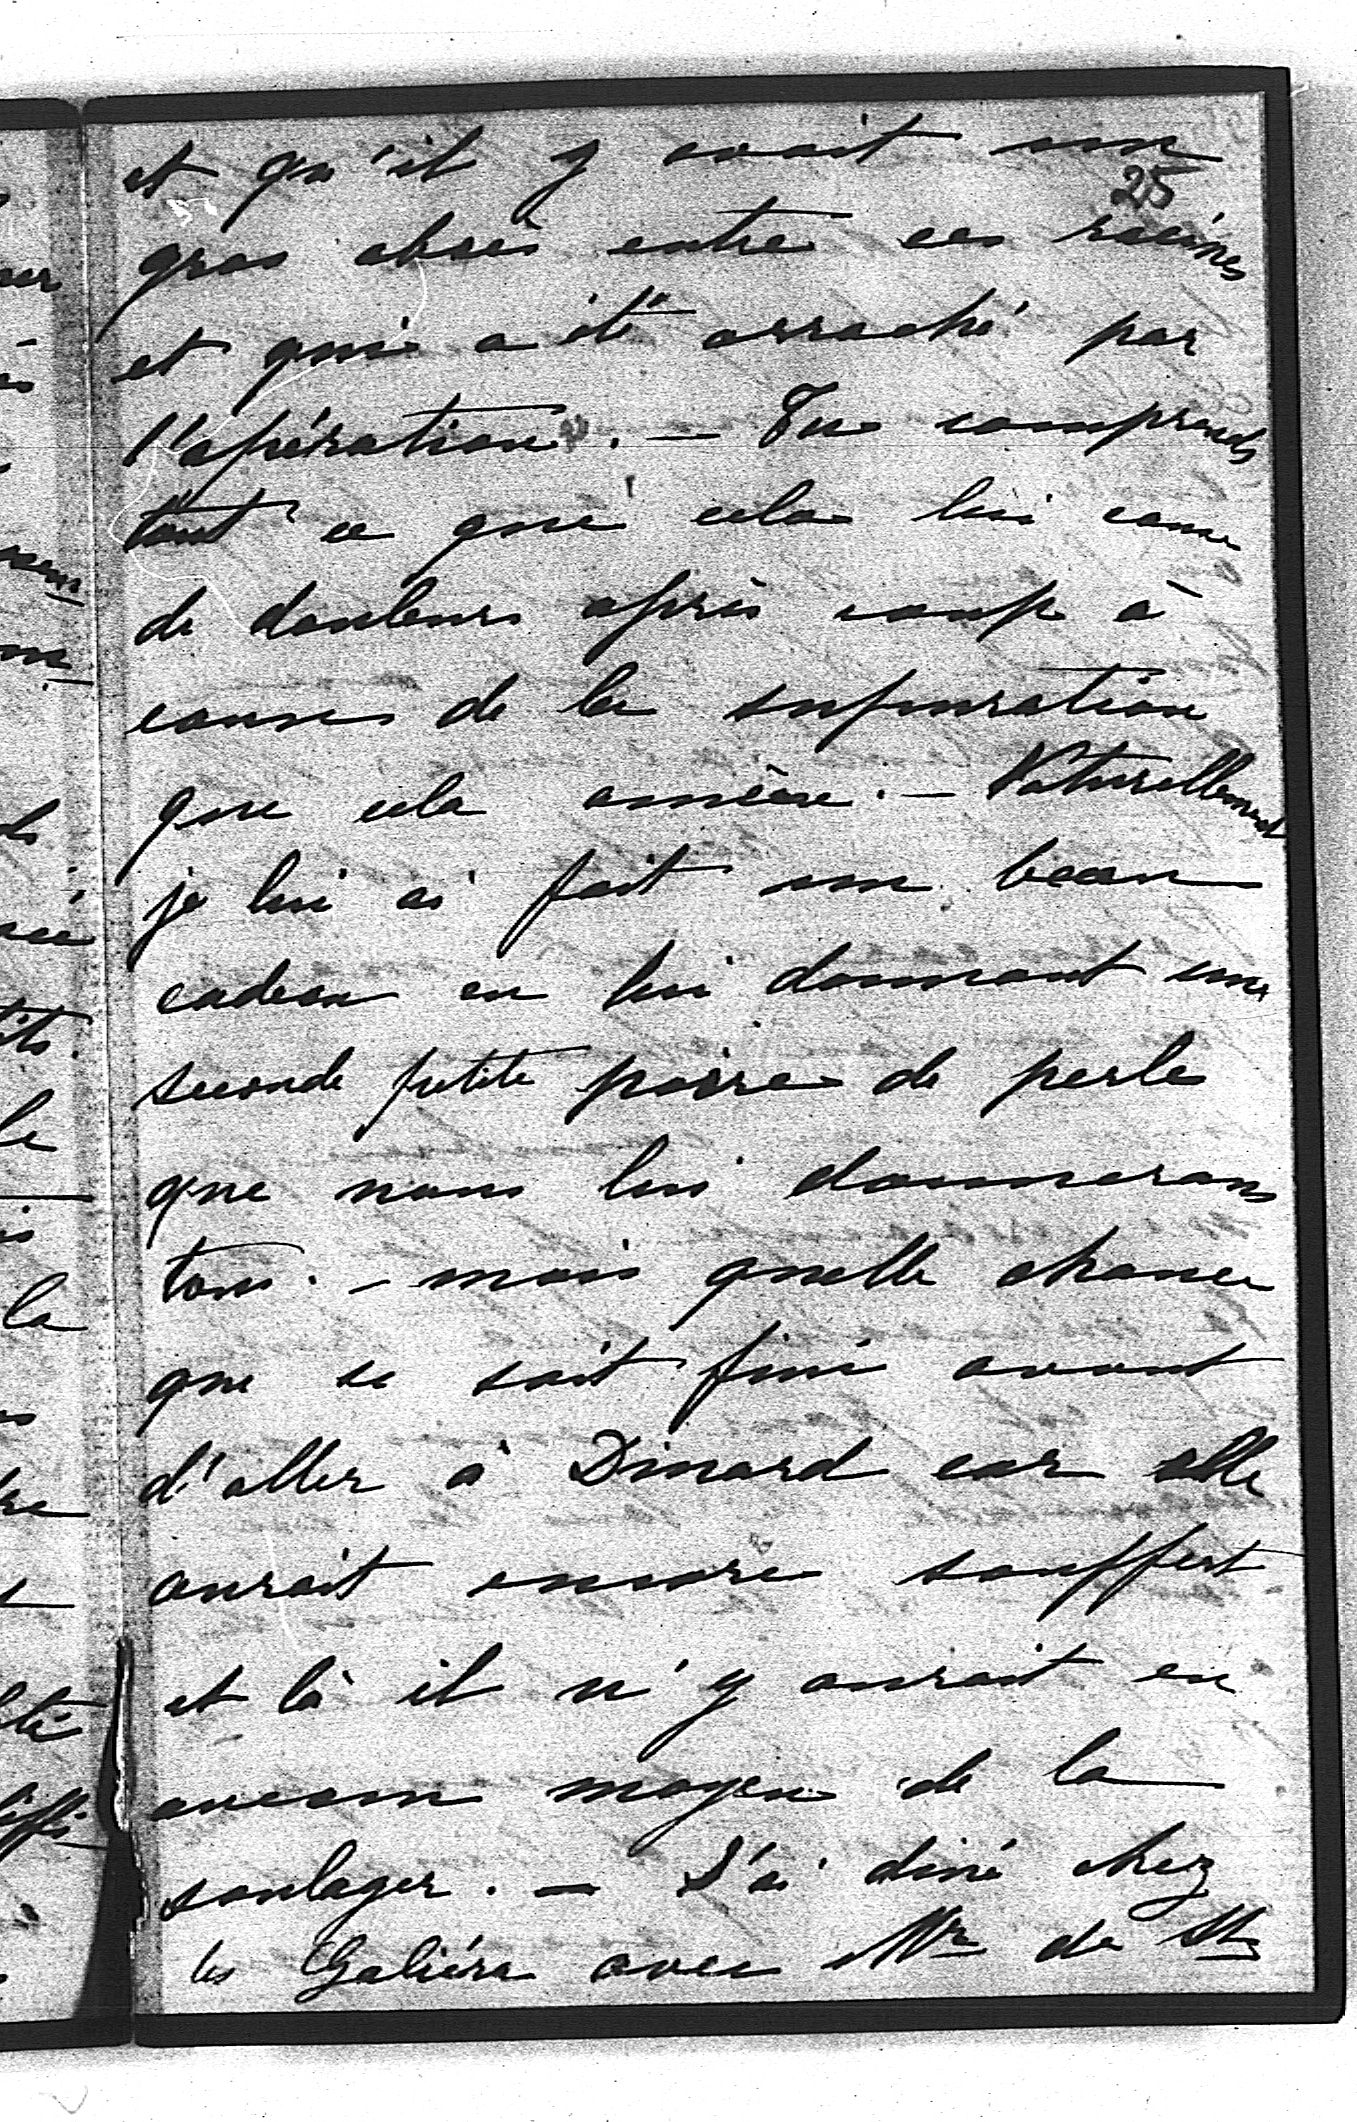 et qu'il y avait un
25
gros absès entre ces racines
et qui a été arraché par
l'opération. — Tu comprends
tout ce que cela lui cause
de douleurs après coup à
cause de la supuration
que cela amène. — Naturellement
je lui ai fait un beau
cadeau en lui donnant une
seconde petite poire de perle
que nous lui donnerons
tous. — mais quelle chance
que ce soit fini avant
d'aller à Dinard car elle
aurait encore souffert
et là il n'y aurait eu
aucun moyen de la
soulager. — J'ai diné chez
les Galiéra avec Mr de